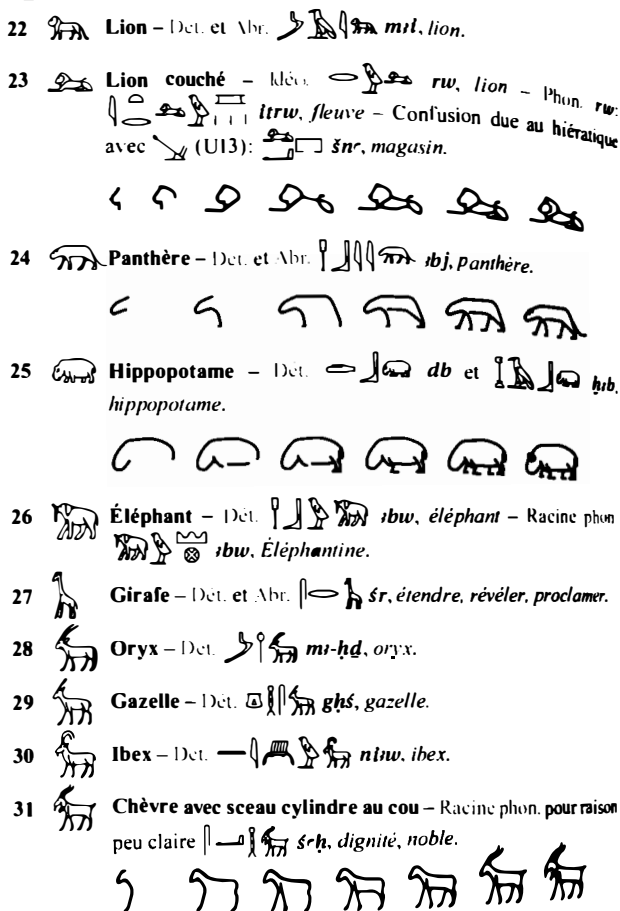 22 Lion – Dét. et Abr. mꜣỉ, lion.
23 Lion couché – Idéo. rw, lion – Phon. rw:
ỉtrw, fleuve – Confusion due au hiératique
avec (U13): šnꜥ, magasin.
24 Panthère – Dét. et Abr. ꜣbj, panthère.
25 Hippopotame – Dét. db et ḥꜣb,
hippopotame.
26 Éléphant – Dét. ꜣbw, éléphant – Racine phon
ꜣbw, Éléphantine.
27 Girafe – Dét. et Abr. śr, étendre, révéler, proclamer.
28 Oryx – Dét. mꜣ-ḥḏ, oryx.
29 Gazelle – Dét. gḥś, gazelle.
30 Ibex – Dét. nỉꜣw, ibex.
31 Chèvre avec sceau cylindre au cou – Racine phon. pour raison
peu claire śꜥḥ, dignité, noble.